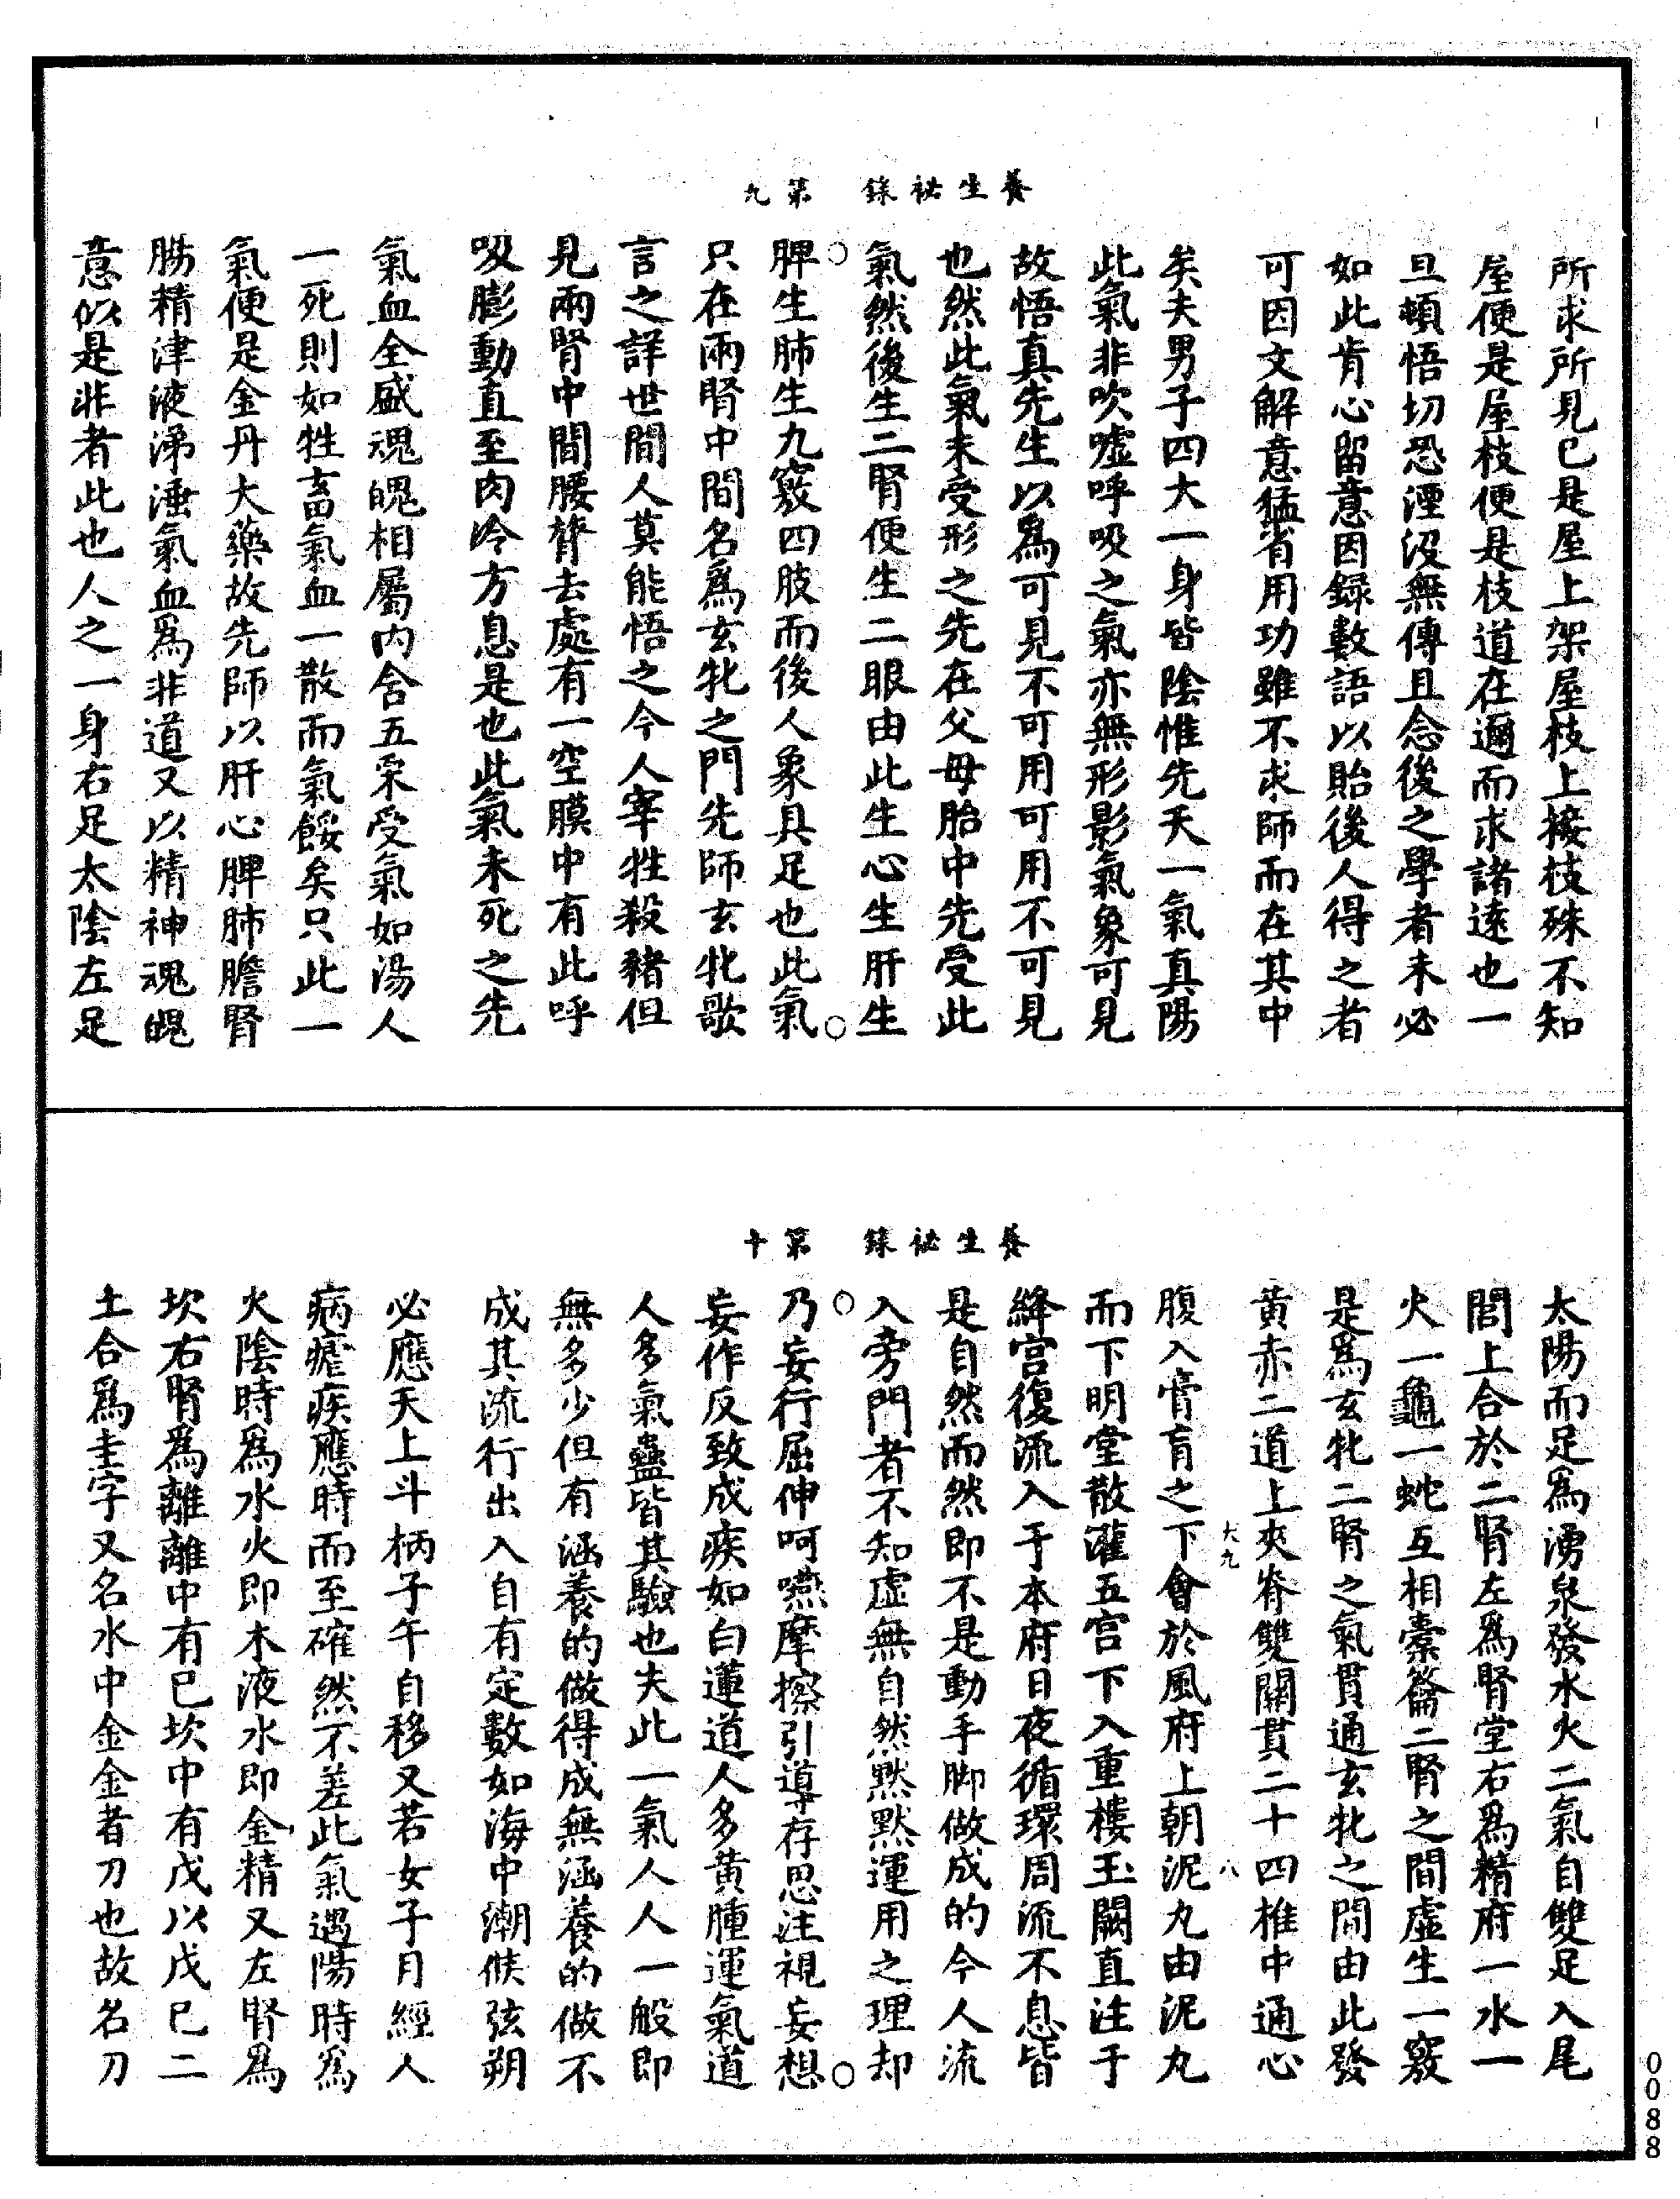 養生祕錄　第九
所求所見已是屋上架屋枝上接枝殊不知
屋便是屋枝便是枝道在邇而求諸遠也一
旦頓悟切恐湮沒無傳且念後之學者未必
如此肯心留意因録數語以貽後人得之者
可因文解意猛省用功雖不求師而在其中
矣夫男子四大一身皆陰惟先天一氣真陽
此氣非吹噓呼吸之氣亦無形影氣象可見
故悟真先生以爲可見不可用可用不可見
也然此氣未受形之先在父母胎中先受此
氣然後生二腎便生二眼由此生心生肝生
脾生肺生九竅四肢而後人象具足也此氣
只在兩腎中間名爲玄牝之門先師玄牝歌
言之詳世間人莫能悟之今人宰牲殺豬但
見兩腎中間腰膂去處有一空膜中有此呼
吸膨動直至肉冷方息是也此氣未死之先
氣血全盛魂魄相屬內舍五宋受氣如湯人
一死則如牲畜氣血一散而氣餒矣只此一
氣便是金丹大藥故先師以肝心脾肺膽腎
腸精津液涕涶氣血爲非道又以精神魂魄
意似是非者此也人之一身右足太陰左足
養生祕錄　第十
太陽而足爲湧泉發水火二氣自雙足入尾
閭上合於二腎左爲腎堂右爲精府一水一
火一龜一蛇互相橐籥二腎之間虛生一竅
是爲玄牝二腎之氣貫通玄牝之間由此發
黃赤二道上夾脊雙關貫二十四椎中通心
大九　八
腹入膏肓之下會於風府上朝泥九由泥丸
而下明堂散灌五宮下入重樓玉闕直注于
絳宮復流入于本府日夜循環周流不息皆
是自然而然即不是動手脚做成的今人流
入旁門者不知虛無自然黙黙運用之理却
乃妄行屈伸呵嚥摩擦引導存思注視妄想
妄作反致成疾如白蓮道人多黃腫運氣道
人多氣蠱皆其驗也夫此一氣人人一般即
無多少但有涵養的做得成無涵養的做不
成其流行出入自有定數如海中潮候弦朔
必應天上斗柄子午自移又若女子月經人
病瘧疾應時而至確然不差此氣遇陽時爲
火陰時爲水火即木液水即金精又左腎爲
坎右腎爲離離中有巳坎中有戊以戊巳二
土合爲圭字又名水中金金者刀也故名刀
0088